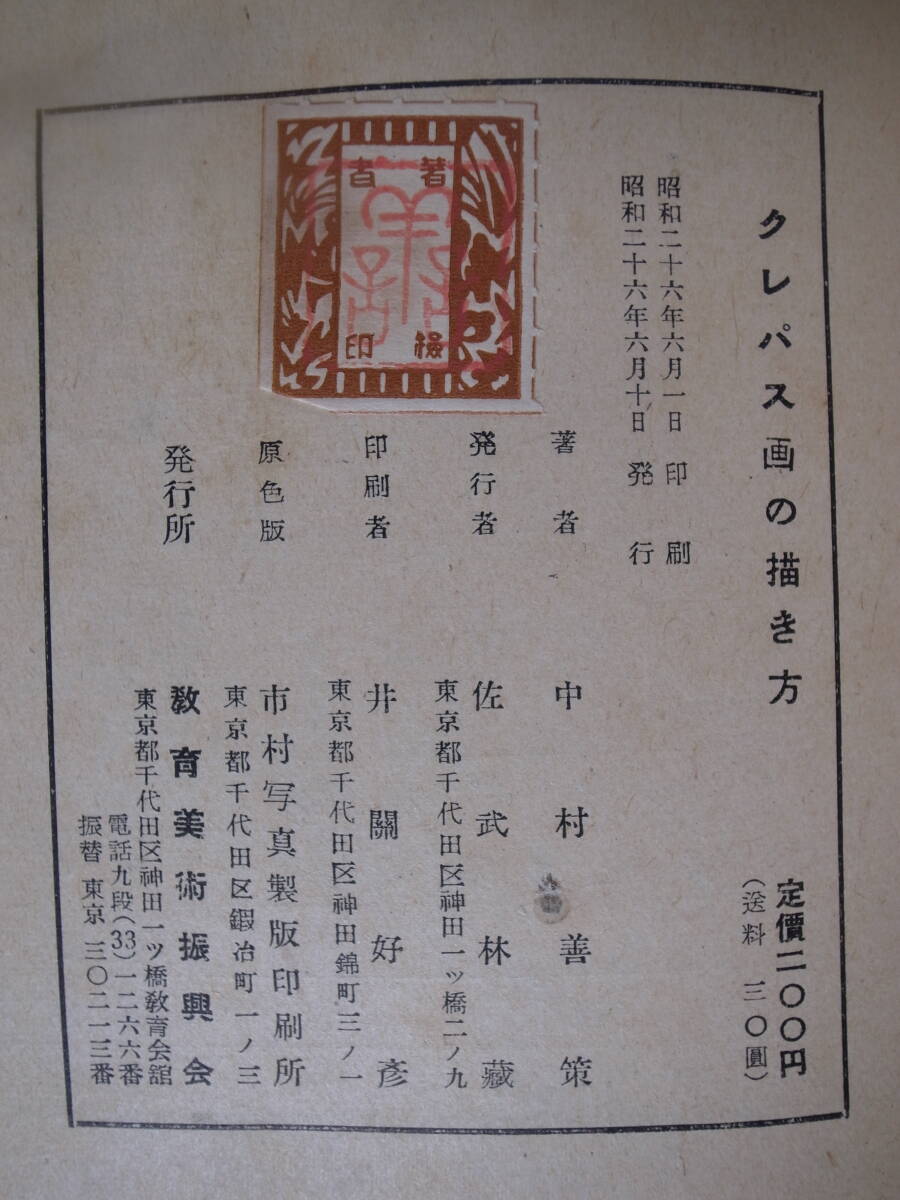 クレパス画の描き方
定價二〇〇円
(送料 三〇圓)
昭和二十六年六月一日 印刷
昭和二十六年六月十日 発行
著者
檢印
著者 中村善策
発行者 佐武林藏
東京都千代田区神田一ッ橋二ノ九
印刷者 井關好彥
東京都千代田区神田錦町三ノ一
原色版 市村写真製版印刷所
東京都千代田区鍜冶町一ノ三
発行所 教育美術振興会
東京都千代田区神田一ッ橋教育会舘
電話九段(33)一二六六番
振替 東京 三〇二一三番